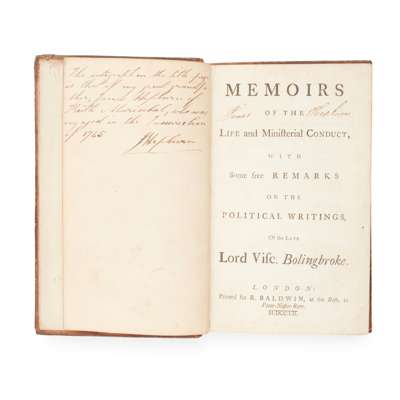 The autograph on the title page
is that of my great grandfa-
ther, James Hepburn of
Keith & who was
engaged in the Insurrection
of 1745
JHepburn
MEMOIRS
OF THE
Hepburn
LIFE and Ministerial CONDUCT,
WITH
Some free REMARKS
ON THE
POLITICAL WRITINGS,
Of the LATE
Lord Viſc. Bolingbroke.
LONDON:
Printed for R. BALDWIN, at the Roſe, in
Pater-Noſter-Row.
MDCCLII.